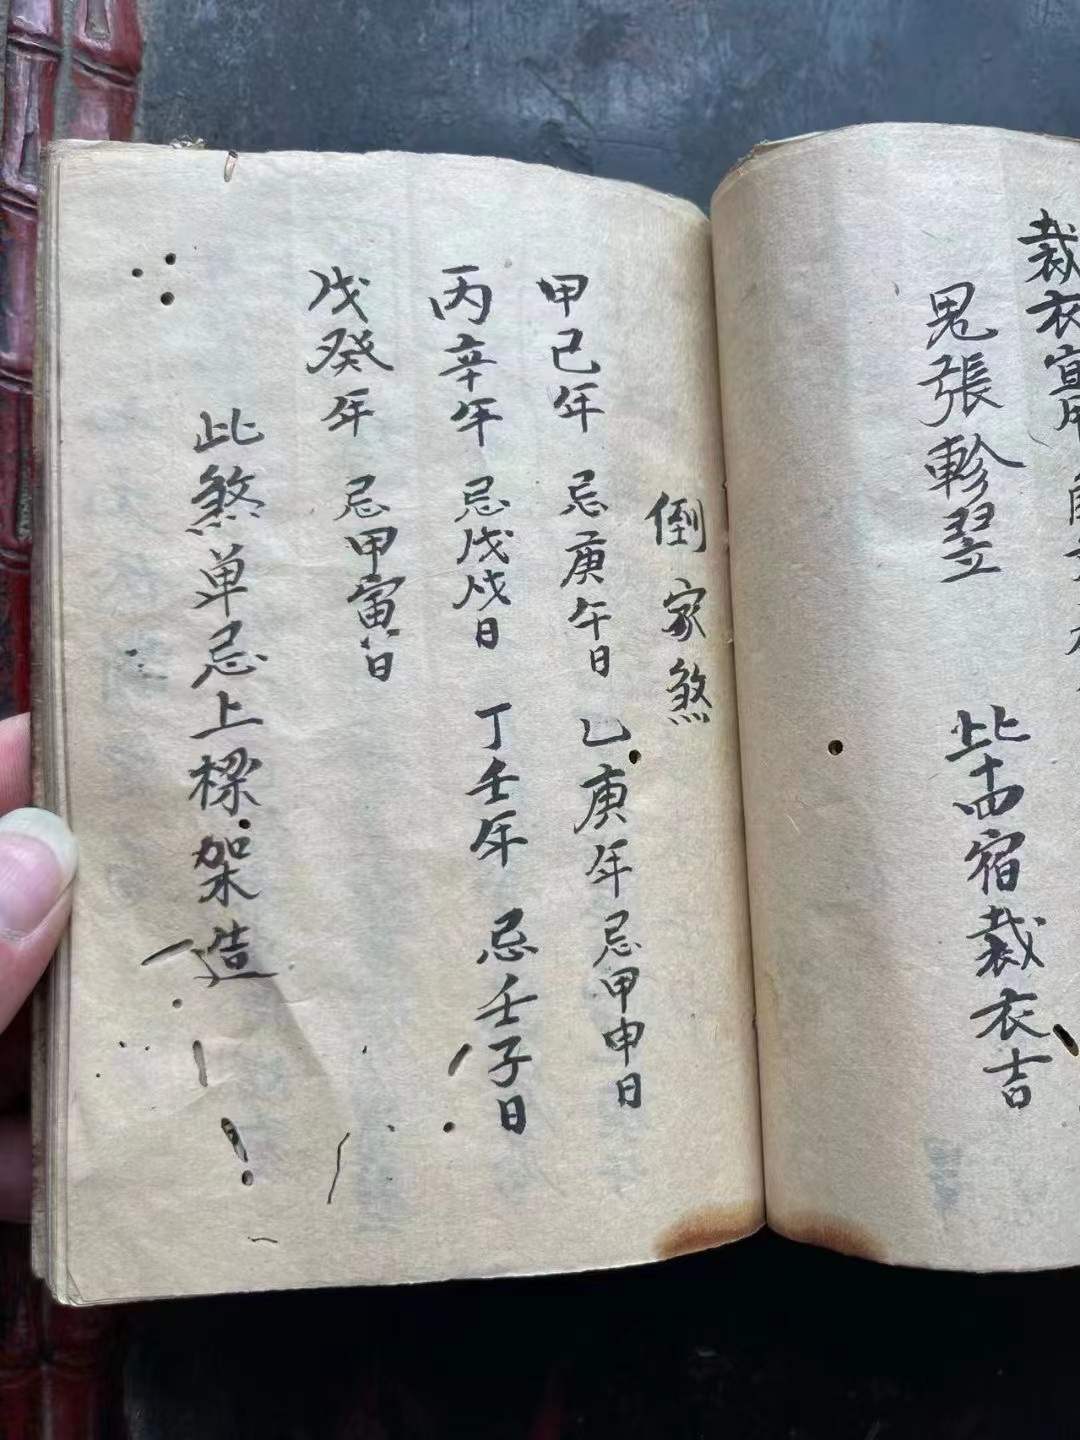 裁衣宜用
鬼張軫翌 此十四宿裁衣吉
倒家煞
甲己年 忌庚午日 乙庚年忌甲申日
丙辛年 忌戊戌日 丁壬年 忌壬子日
戊癸年 忌甲寅日
此煞单忌上樑架造